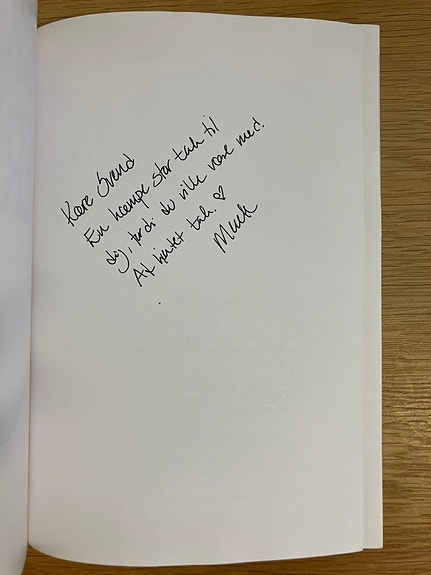 Kære Svend
En kæmpe stor tak til
dig, fordi du ville være med!
Af hjertet tak. ♡